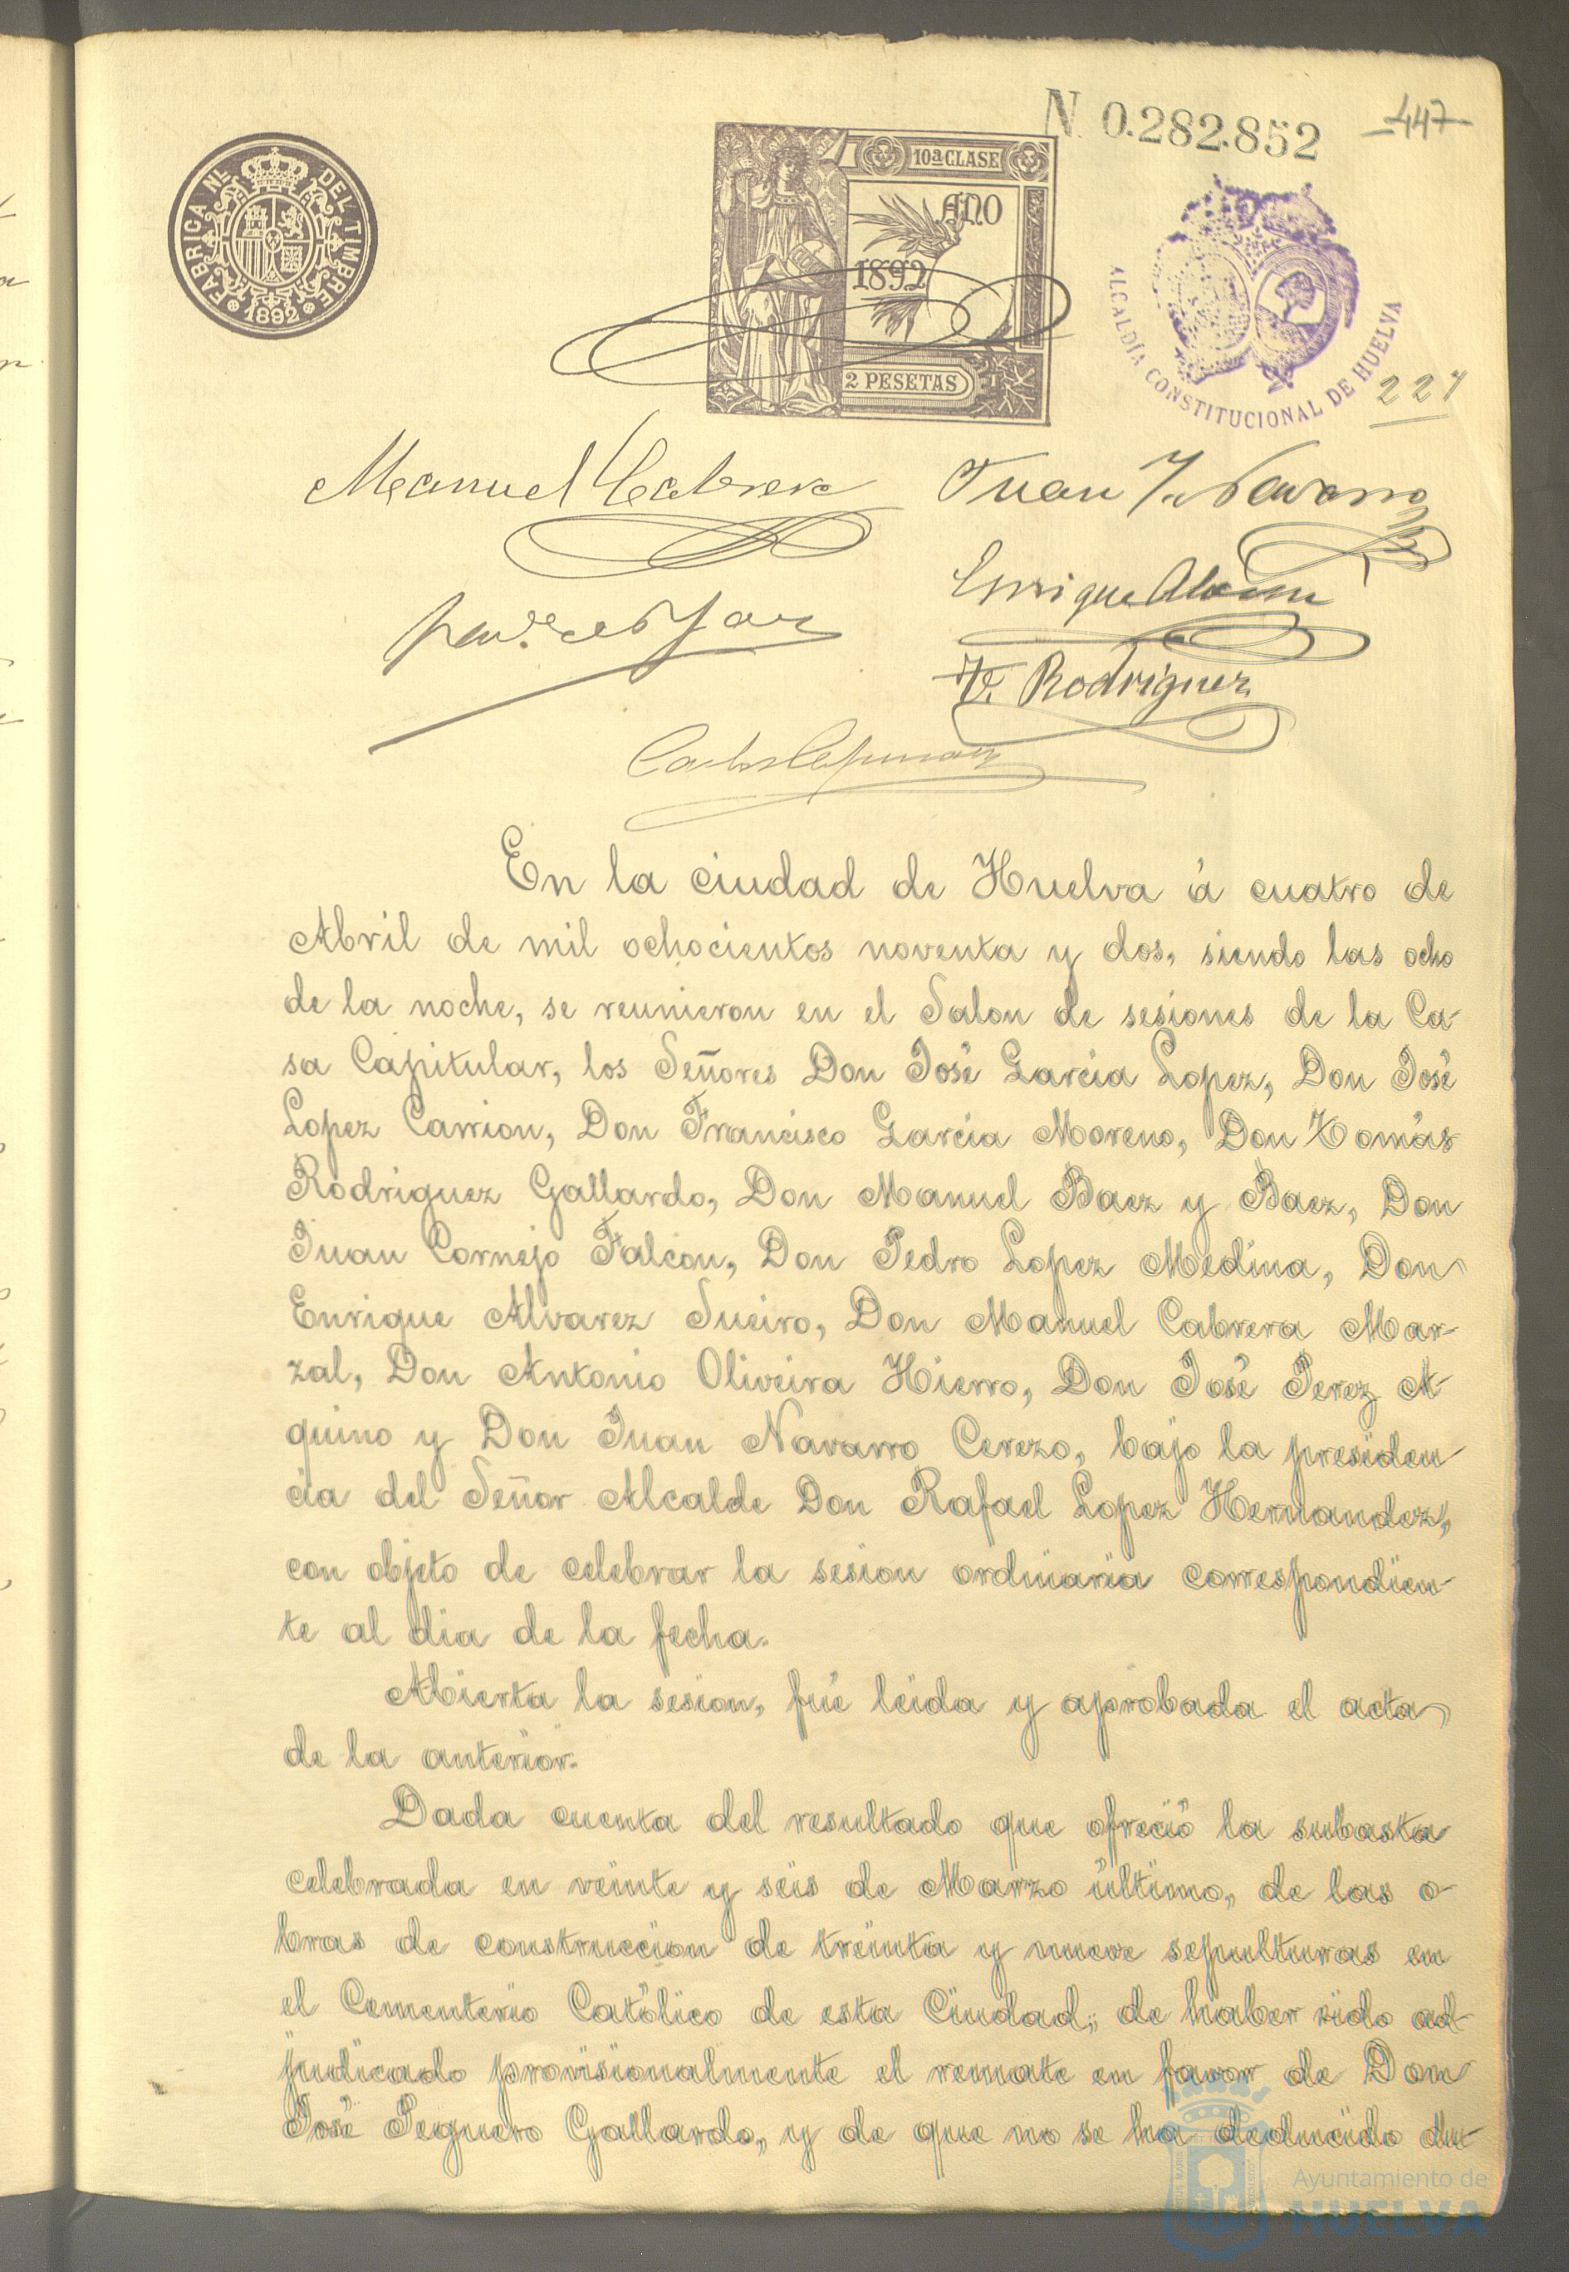 N. 0.282.852
447
FABRICA NL. DEL TIMBRE
1892
10ª CLASE
AÑO
1892
2 PESETAS
ALCALDÍA CONSTITUCIONAL DE HUELVA
227
Manuel Cabrera
Juan J. Navarro
Enrique
F. Rodriguez
Carlos
En la ciudad de Huelva á cuatro de
Abril de mil ochocientos noventa y dos, siendo las ocho
de la noche, se reunieron en el Salon de sesiones de la Ca-
sa Capitular, los Señores Don José Garcia Lopez, Don José
Lopez Carrion, Don Francisco Garcia Moreno, Don Tomás
Rodriguez Gallardo, Don Manuel Baez y Baez, Don
Juan Cornejo Falcon, Don Pedro Lopez Medina, Don
Enrique Alvarez Sueiro, Don Manuel Cabrera Mar-
zal, Don Antonio Oliveira Hierro, Don José Perez A-
quino y Don Juan Navarro Cerezo, bajo la presiden-
cia del Señor Alcalde Don Rafael Lopez Hernandez,
con objeto de celebrar la sesion ordinaria correspondien-
te al dia de la fecha.
Abierta la sesion, fué leida y aprobada el acta
de la anterior.
Dada cuenta del resultado que ofreció la subasta
celebrada en veinte y seis de Marzo último, de las o-
bras de construccion de treinta y nueve sepulturas en
el Cementerio Católico de esta Ciudad; de haber sido ad-
judicado provisionalmente el remate en favor de Don
José Peguero Gallardo, y de que no se ha deducido du-
Ayuntamiento de
HUELVA